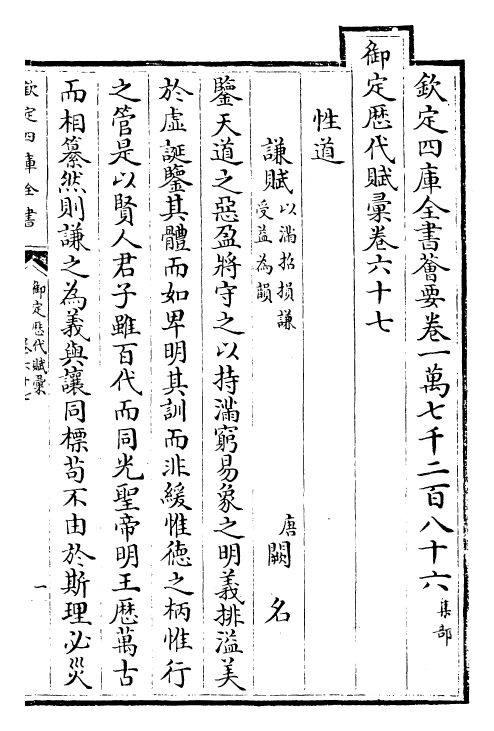 欽定四庫全書薈要卷一萬七千二百八十六 集部
御定歷代賦彙卷六十七
性道
謙賦 以滿招損謙受益為韻 唐 闕名
鑒天道之惡盈將守之以持滿窮易象之明義排溢美
於虛誕鑒其體而如卑明其訓而非緩惟德之柄惟行
之管是以賢人君子雖百代而同光聖帝明王歷萬古
而相纂然則謙之為義與讓同標茍不由於斯理必災
欽定四庫全書
御定歷代賦彙 卷六十七
一